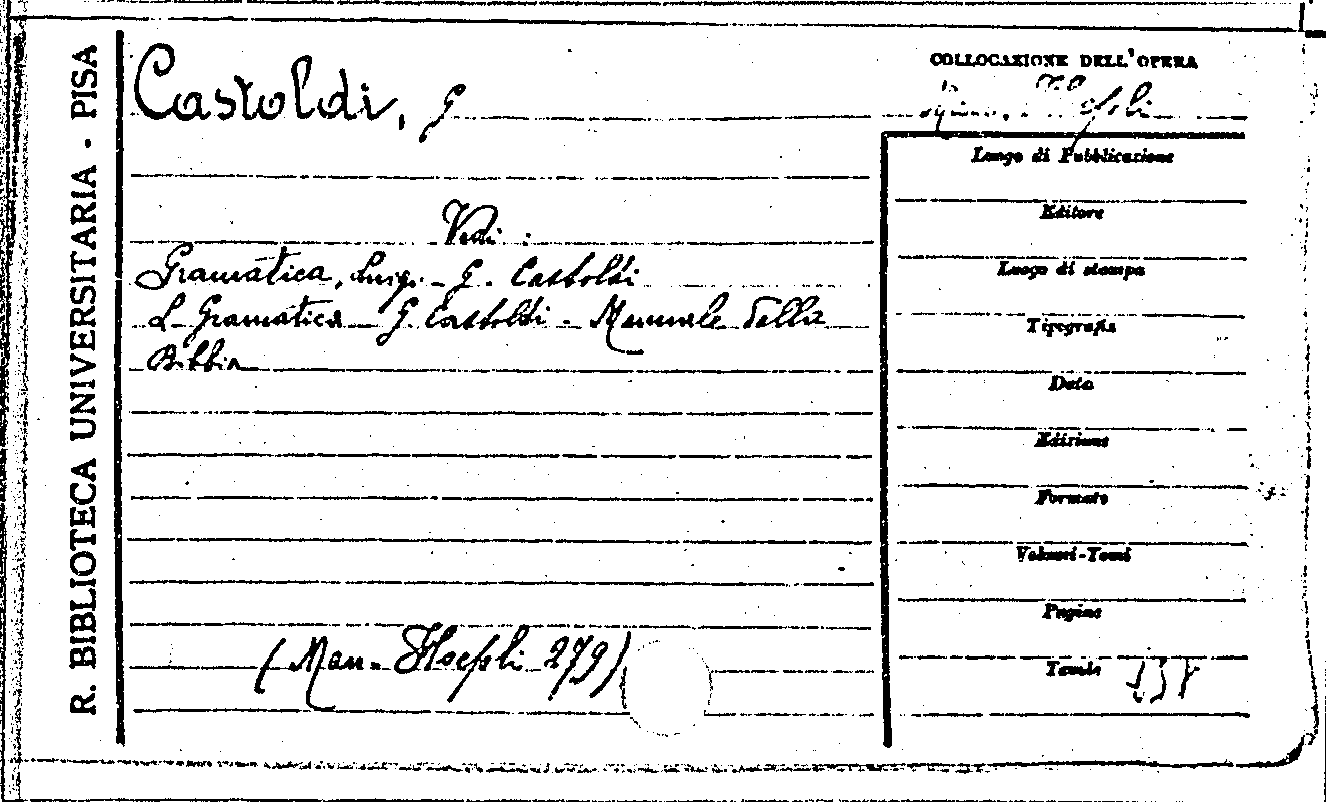 R. BIBLIOTECA UNIVERSITARIA - PISA
Castoldi, G
Vedi :
Gramatica, Luigi - G. Castoldi
L. Gramatica - G. Castoldi - Manuale della
Bibbia
(Man. Hoepli 279)
COLLOCAZIONE DELL'OPERA
Hoepli
Luogo di Pubblicazione
Editore
Luogo di stampa
Tipografia
Data
Edizione
Formato
Volumi-Tomi
Pagine
Tavole